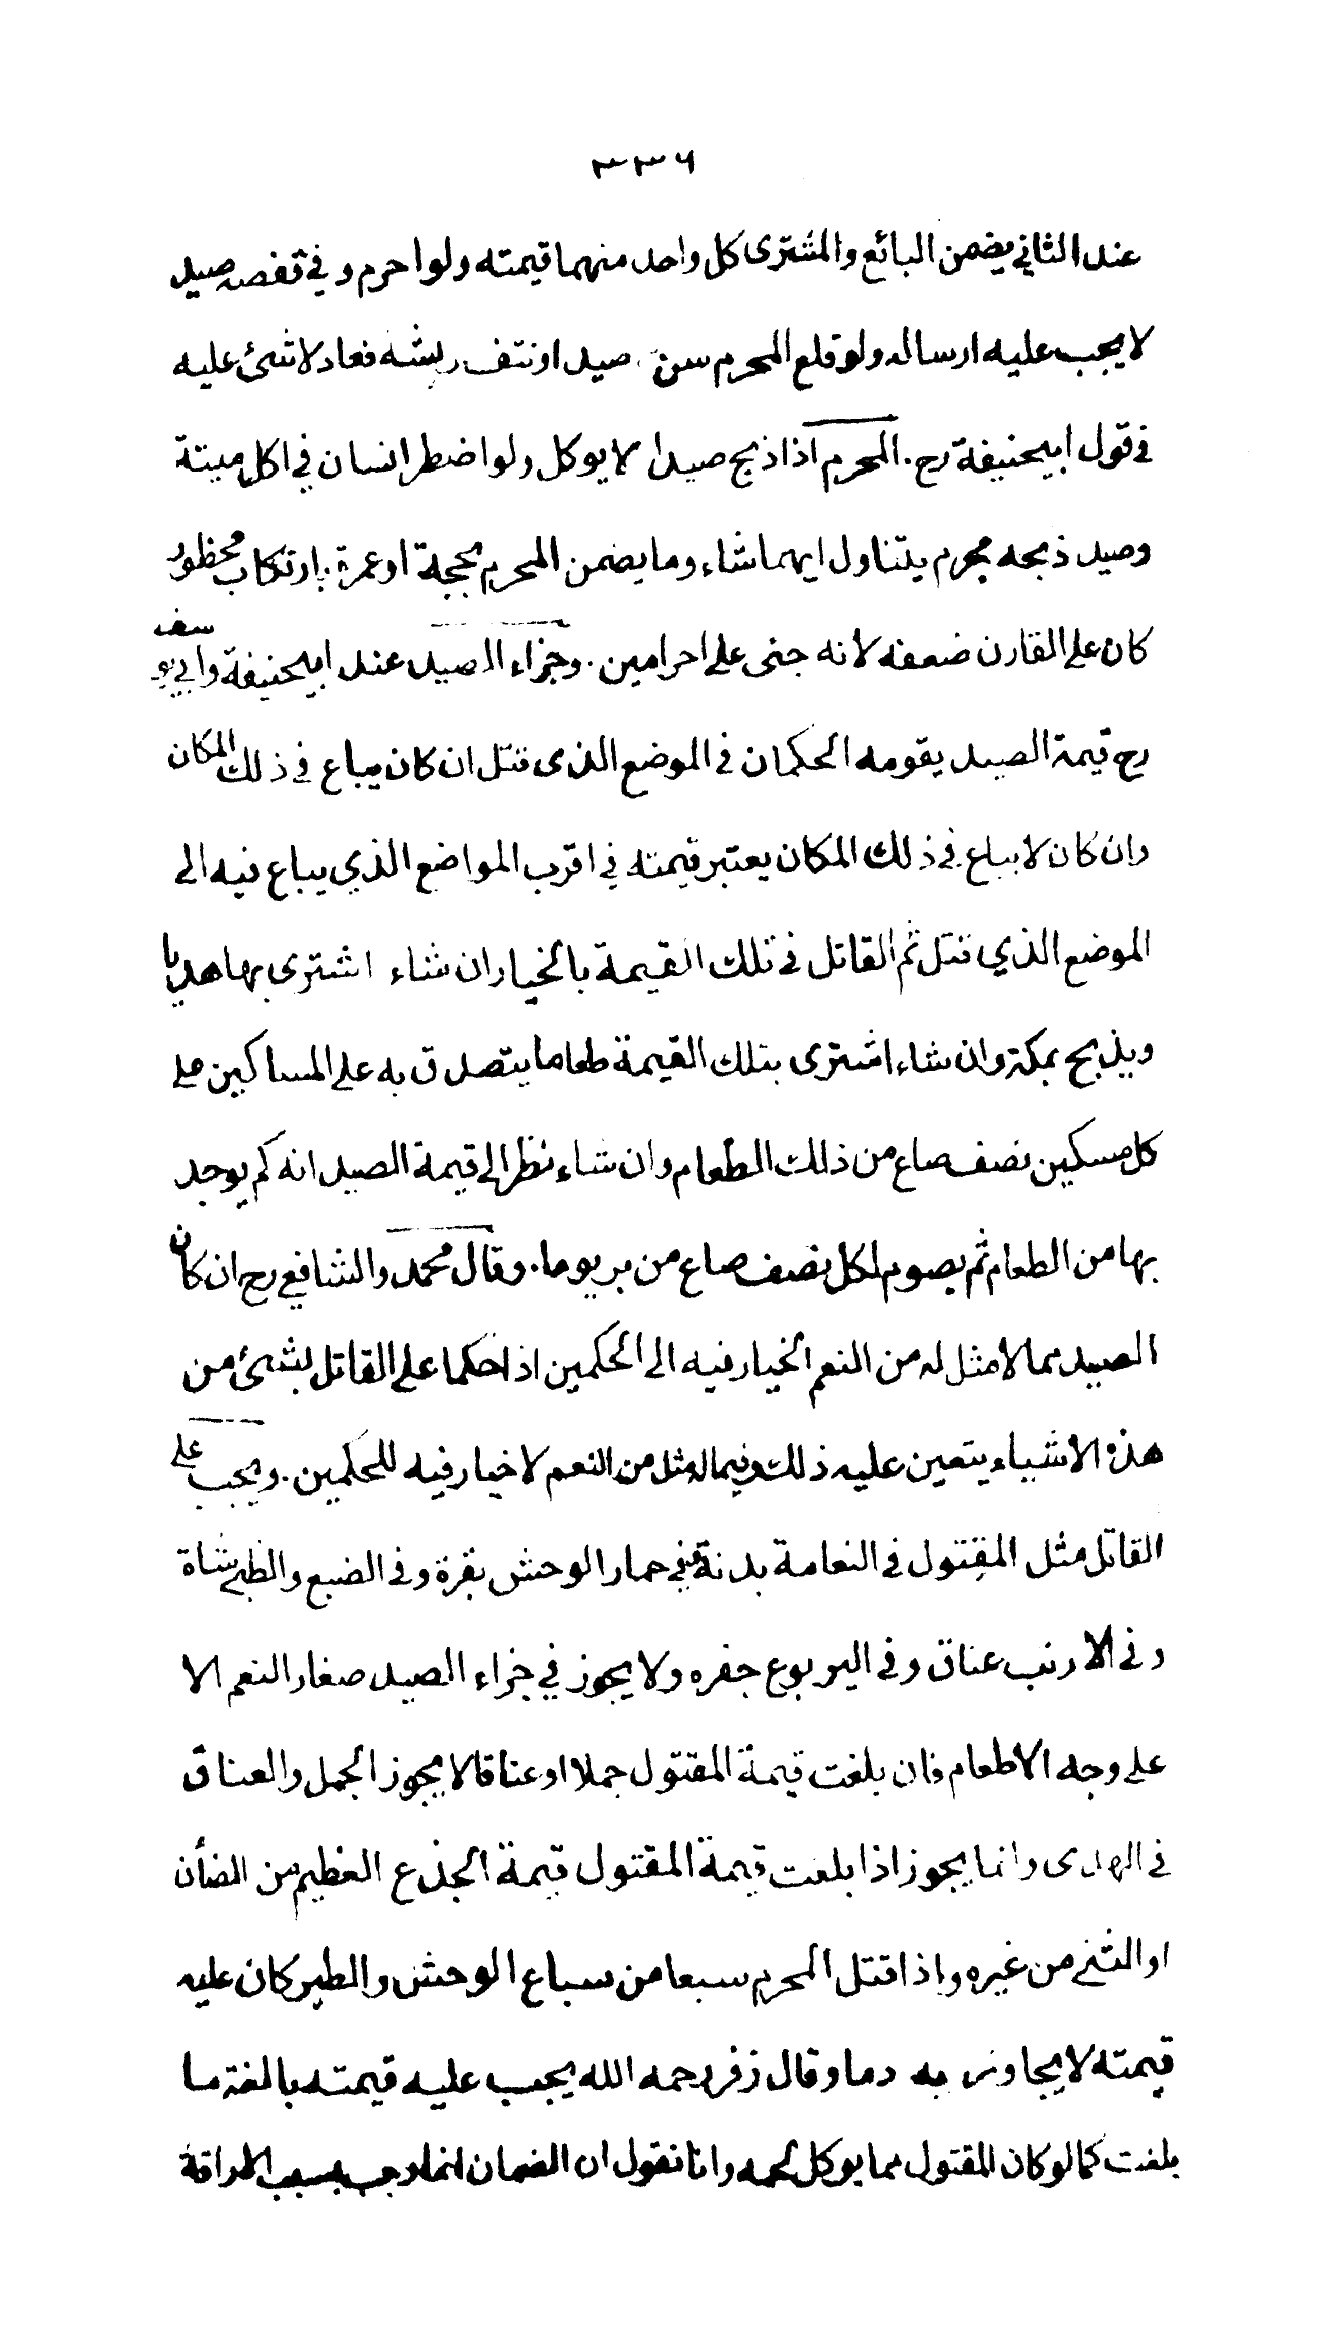 ٣٣٦
عند الثاني يضمن البائع والمشترى كل واحد منهما قيمته ولو احرم وفي قفصه صيد
لا يجب عليه ارساله ولو قلع المحرم سن صيد او نتف ريشه فعاد لا شئ عليه
في قول ابيحنيفة رح. المحرم اذا ذبح صيدا لا يوكل ولو اضطر انسان في اكل ميتة
وصيد ذبحه محرم يتناول ايهما شاء وما يضمن المحرم بحجة او عمرة بارتكاب محظور
كان على القارن ضعفه لانه جنى على احرامين. وجزاء الصيد عند ابيحنيفة وابي يوسف
رح قيمة الصيد يقومه الحكمان في الموضع الذى قتل ان كان يباع في ذلك المكان
وان كان لا يباع في ذلك المكان يعتبر قيمته في اقرب المواضع الذي يباع فيه الى
الموضع الذي قتل ثم القاتل في تلك القيمة بالخيار ان شاء اشترى بها هديا
ويذبح بمكة وان شاء اشترى بتلك القيمة طعاما يتصدق به على المساكين على
كل مسكين نصف صاع من ذلك الطعام وان شاء نظر الى قيمة الصيد انه كم يوجد
بها من الطعام ثم يصوم لكل نصف صاع من بر يوما. وقال محمد والشافعي رح ان كان
الصيد مما لا مثل له من النعم الخيار فيه الى الحكمين اذا حكما على القاتل بشئ من
هذه الاشياء يتعين عليه ذلك وفيما له مثل من النعم لا خيار فيه للحكمين. ويجب على
القاتل مثل المقتول في النعامة بدنة وفي حمار الوحش بقرة وفي الضبع والظبي شاة
وفي الارنب عناق وفي اليربوع جفره ولا يجوز في جزاء الصيد صغار النعم الا
على وجه الاطعام فان بلغت قيمة المقتول جملا او عناقا لا يجوز الجمل والعناق
في الهدى وانما يجوز اذا بلغت قيمة المقتول قيمة الجذع العظيم من الضأن
او الثني من غيره واذا قتل المحرم سبعا من سباع الوحش والطير كان عليه
قيمته لا يجاوز به دما وقال زفر رحمه الله يجب عليه قيمته بالغة ما
بلغت كما لو كان المقتول مما يوكل لحمه وانا نقول ان الضمان انما وجب بسبب الاراقة